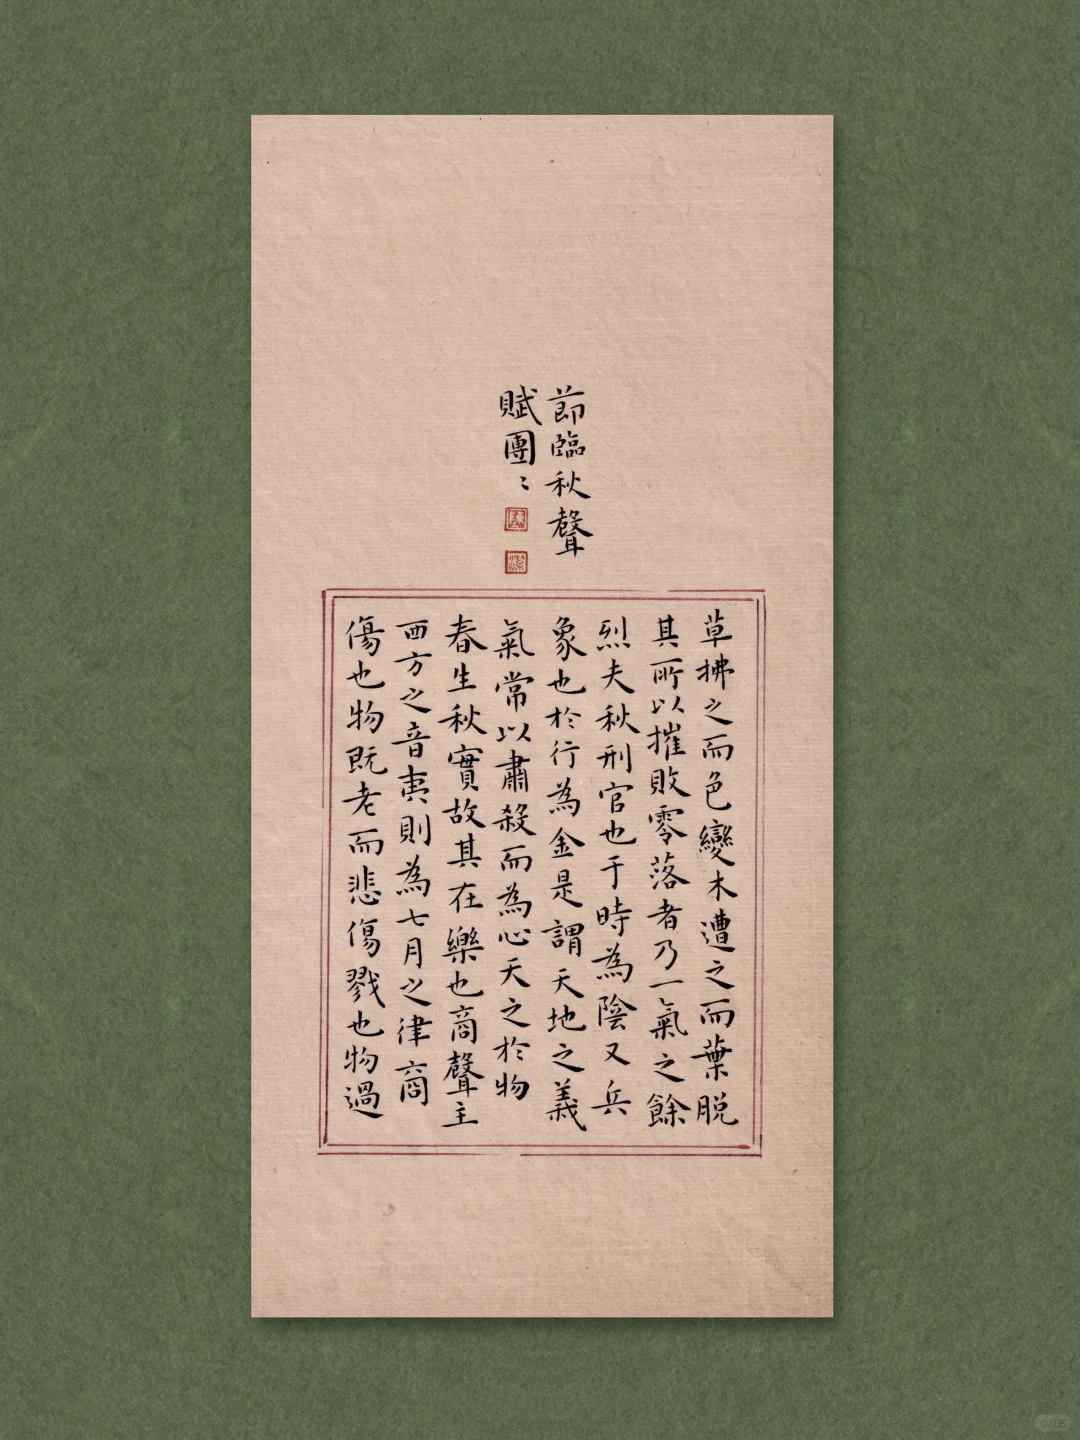 節臨秋聲
賦團〻
草拂之而色變木遭之而葉脱
其所以摧敗零落者乃一氣之餘
烈夫秋刑官也于時為陰又兵
象也於行為金是謂天地之義
氣常以肅殺而為心天之於物
春生秋實故其在樂也商聲主
西方之音夷則為七月之律商
傷也物既老而悲傷戮也物過